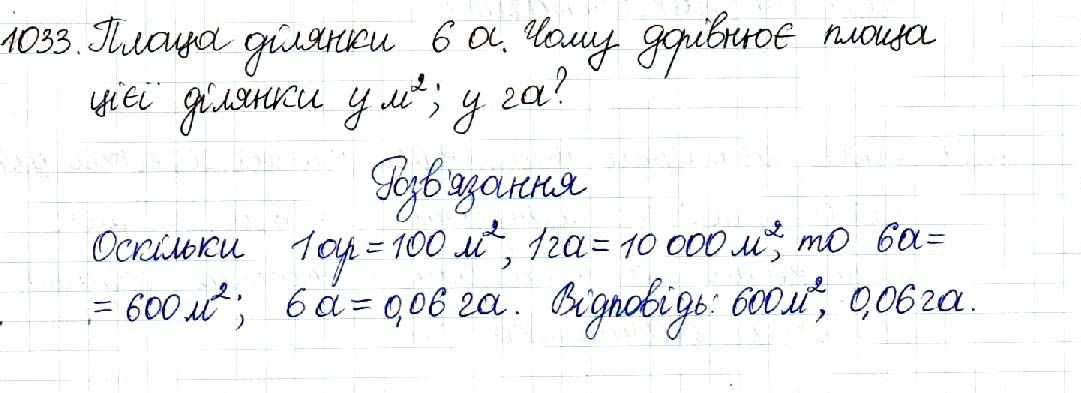 1033. Площа ділянки 6 а. Чому дорівнює площа
цієї ділянки у м²; у га?
Розв'язання
Оскільки 1 ар = 100 м², 1 га = 10 000 м², то 6а =
= 600 м²; 6 а = 0,06 га. Відповідь: 600 м², 0,06 га.